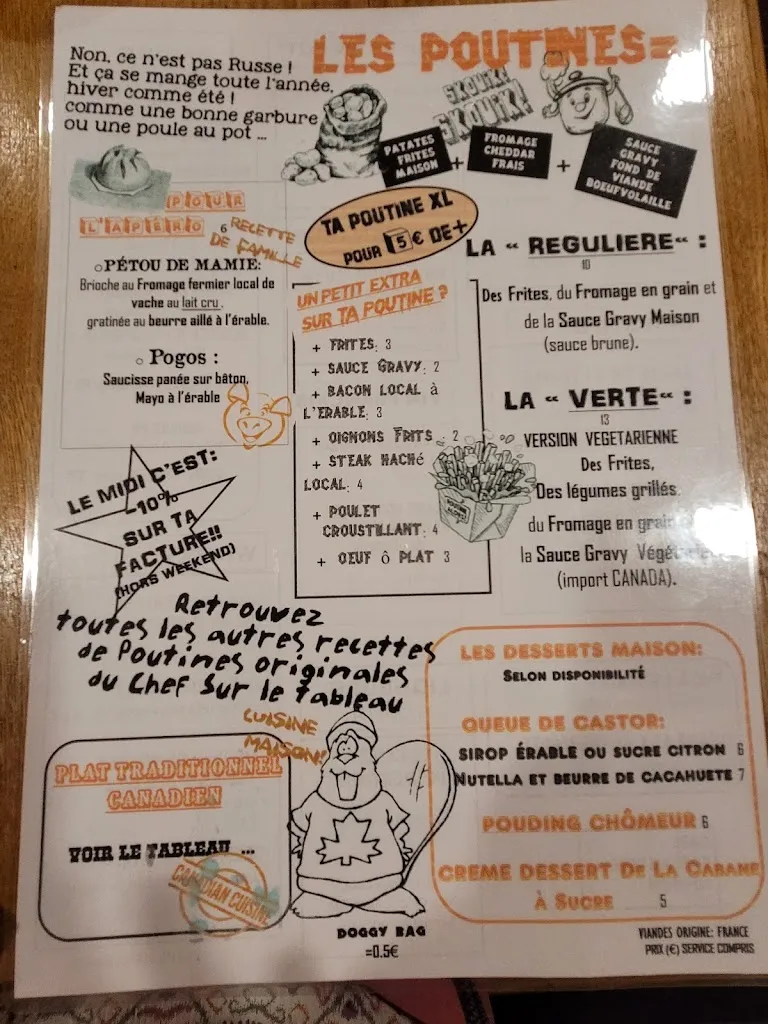 Non, ce n'est pas Russe !
Et ça se mange toute l'année,
hiver comme été !
comme une bonne garbure
ou une poule au pot ...
LES POUTINES=
SKOUIK!
SKOUIK!
PATATES
FRITES
MAISON
+
FROMAGE
CHEDDAR
FRAIS
+
SAUCE
GRAVY
FOND DE
VIANDE
BOEUFVOLAILLE
POUR
L'APERO 6
RECETTE
DE FAMILLE
PÉTOU DE MAMIE:
Brioche au Fromage fermier local de
vache au lait cru ,
gratinée au beurre aillé à l'érable.
Pogos :
Saucisse panée sur bâton,
Mayo à l'érable
TA POUTINE XL
POUR 5€ DE+
UN PETIT EXTRA
SUR TA POUTINE ?
+ FRITES: 3
+ SAUCE GRAVY: 2
+ BACON LOCAL à
L'ERABLE: 3
+ OIGNONS FRITS : 2
+ STEAK HACHé
LOCAL: 4
+ POULET
CROUSTILLANT: 4
+ OEUF ô PLAT 3
LA « REGULIERE« :
10
Des Frites, du Fromage en grain et
de la Sauce Gravy Maison
(sauce brune).
LA « VERTE« :
13
VERSION VEGETARIENNE
Des Frites,
Des légumes grillés.
du Fromage en grain
la Sauce Gravy
(import CANADA).
LE MIDI C'EST:
-10%
SUR TA
FACTURE!!
(HORS WEEKEND)
Retrouvez
toutes les autres recettes
de Poutines originales
du Chef Sur le tableau
CUISINE
MAISON!
PLAT TRADITIONNEL
CANADIEN
VOIR LE TABLEAU ...
CANADIAN CUISINE
DOGGY BAG
=0.5€
LES DESSERTS MAISON:
SELON DISPONIBILITÉ
QUEUE DE CASTOR:
SIROP ÉRABLE OU SUCRE CITRON 6
NUTELLA ET BEURRE DE CACAHUETE 7
POUDING CHÔMEUR 6
CREME DESSERT DE LA CABANE
À SUCRE 5
VIANDES ORIGINE: FRANCE
PRIX (€) SERVICE COMPRIS